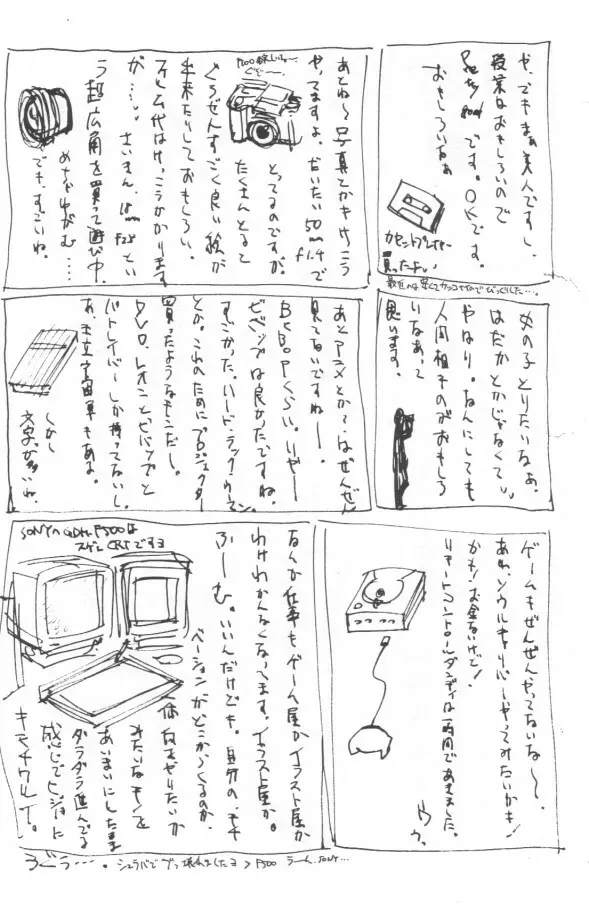 や、できまぁ美人ですし、
授業はおもしろいので
です。OKです。
おもしろいなぁ
カセットプレーヤー
買ったよぃ
最近のは安くてカッコイイのでびっくりした…。
あとね〜写真とかもけっこう
やってますよ。だいたい50mm f1.4で
とってるのですが、
たくさんとると
ぐうぜんすごく良い絵が
出来たりしておもしろい。
フィルム代はけっこうかかります
が……。さいきん、18mm f2.8とい
う超広角を買って遊び中。
めちゃゆがむ……
でも、すごいね。
女の子とりたいなぁ。
はだかとかじゃなくて。
やはり。なんにしても
人間相手のがおもしろ
いなぁって
思います。
あとアニメとか?はぜんぜん
見てないですねー。
BEBOPくらい。いやー
ビバップは良かったですね。
すごかった、ハード・ラック・ウーマン
とか。これのためにプロジェクター
買ったようなモンだし。
DVD、レオンとビバップと
パトレイバーしか持ってないし。
あ、王立宇宙軍もあるよ。
しかし
文字が多いね、
ゲームもぜんぜんやってないな〜〜。
あれ、ソウルキャリバーやってみたいかも!
かも!お金ないけど!
リモートコントロールダンディは一時間であきました。
ウゥ、
なんか仕事もゲーム屋かイラスト屋か
わけわかんなくなってます。イラスト屋か。
ふーむ。いいんだけども。自分の、モチ
ベーションがどこからくるのか、
何をやりたいか
みたいなモノを
あいまいにしたまま
ダラダラ進んでる
感じでビジョーに
キモチワルイ。
SONYのGDM-F500は
スゲェCRTですヨ
ろぐぅ…。
シュラバでブッ壊れましたヨ>F500 うーん、SONY…